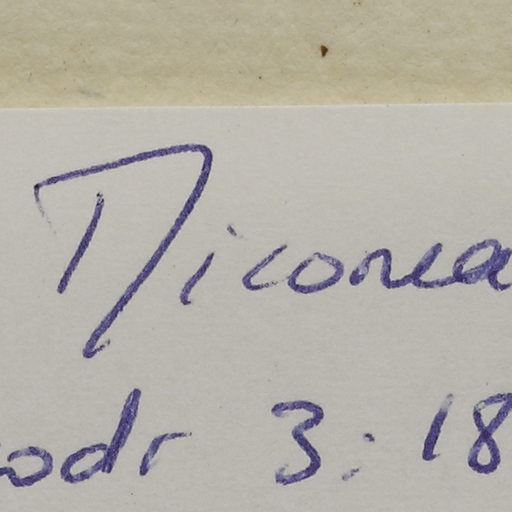 Diconea
odr 3:18